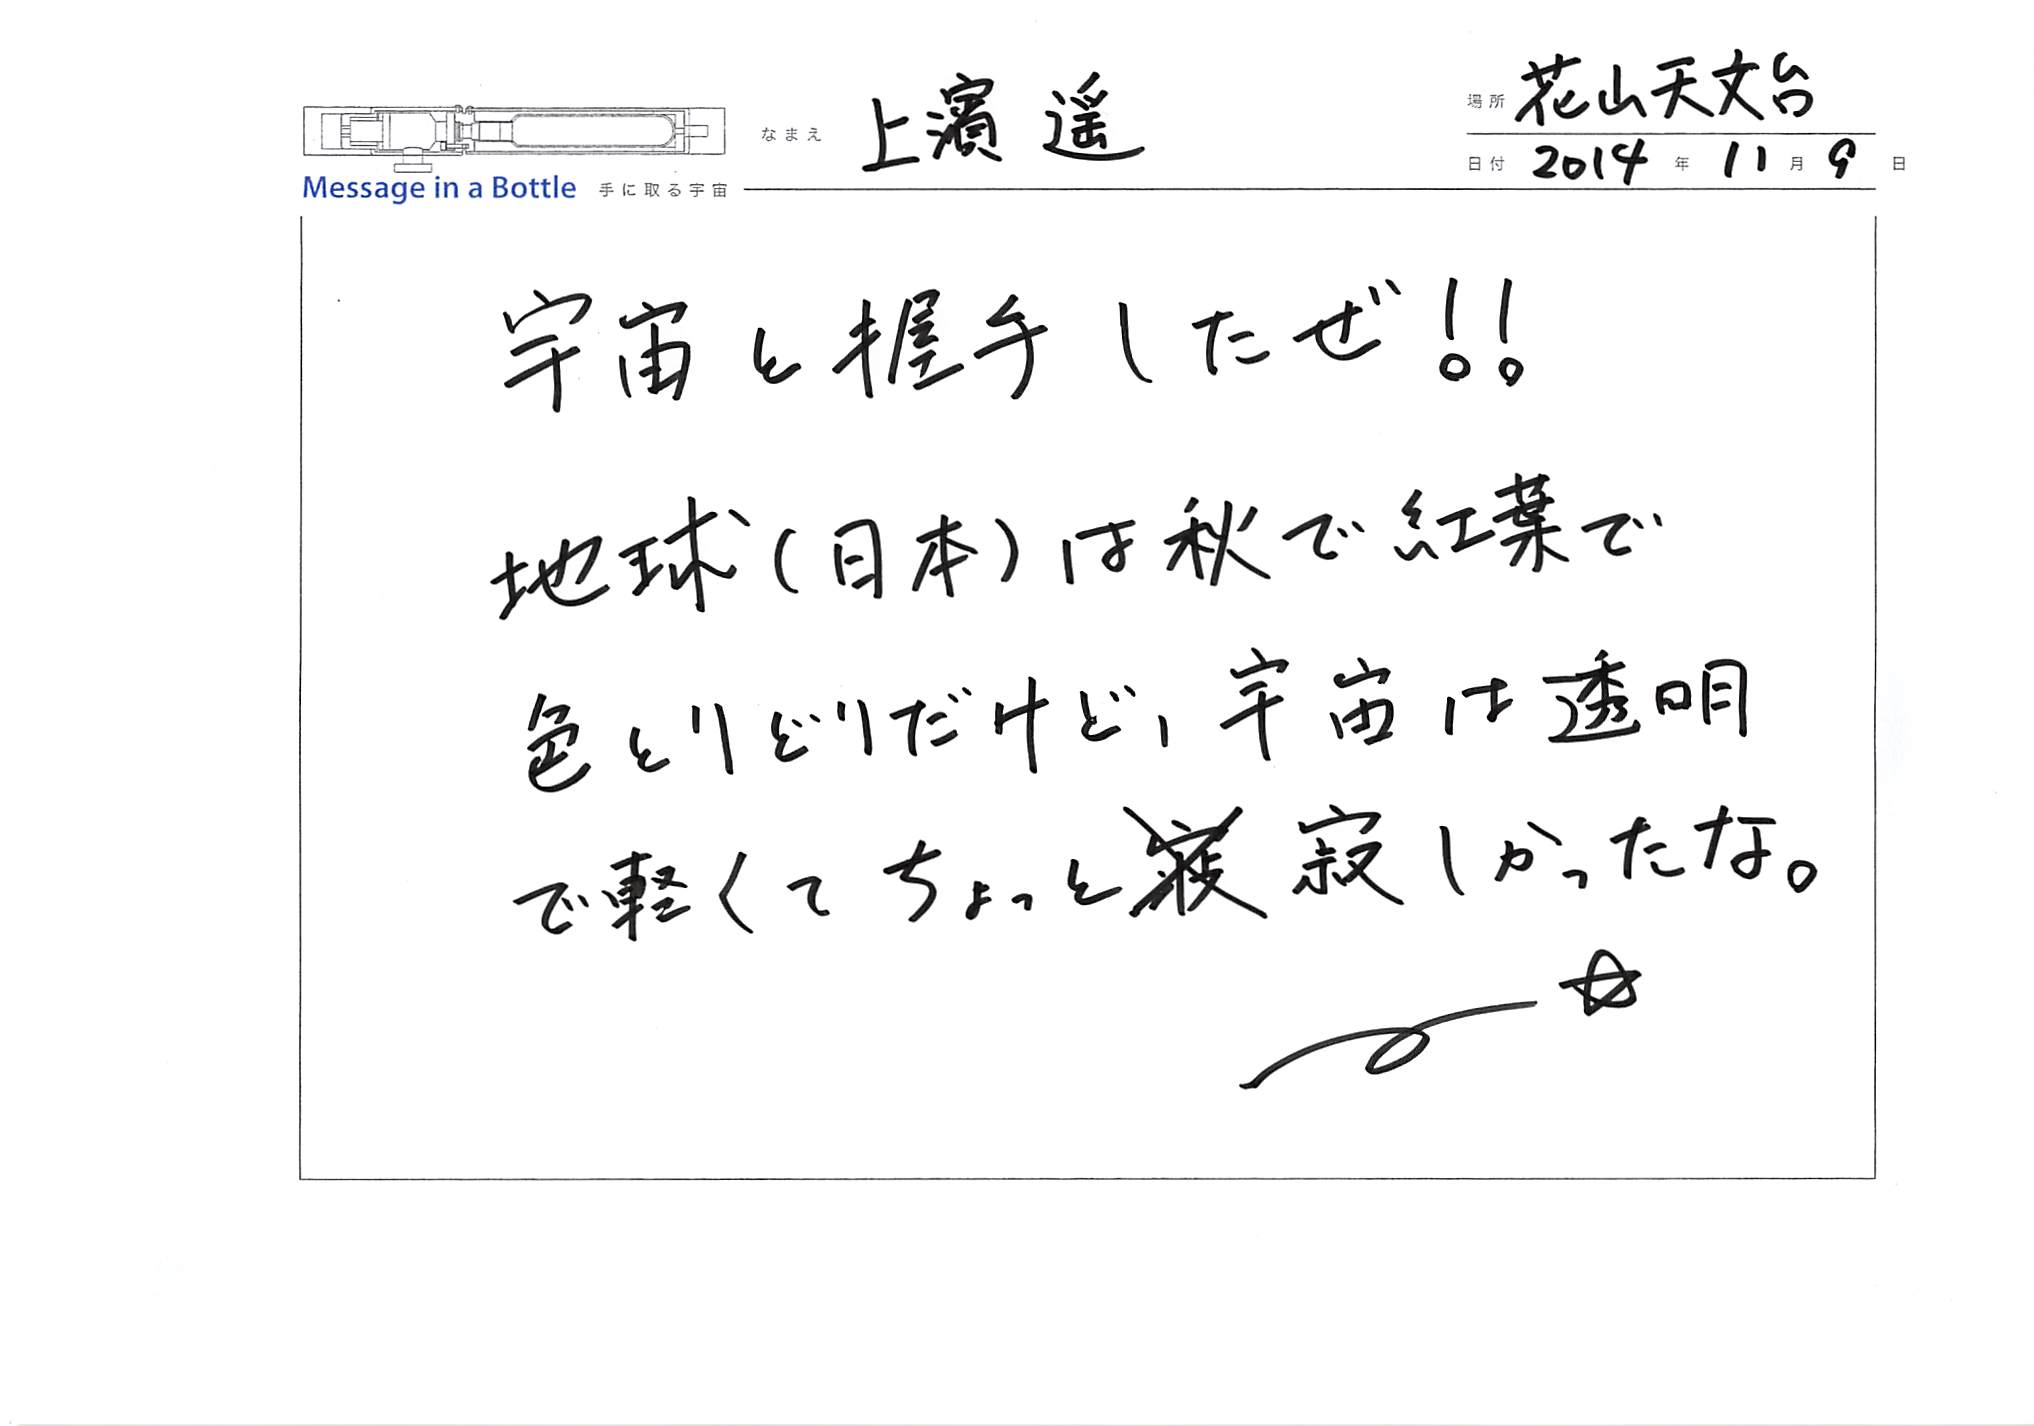 なまえ 上濱 遥
場所 花山天文台
日付 2014 年 11 月 9 日
Message in a Bottle 手に取る宇宙
宇宙と握手したぜ!!
地球(日本)は秋で紅葉で
色とりどりだけど、宇宙は透明
で軽くてちょっと寂しかったな。